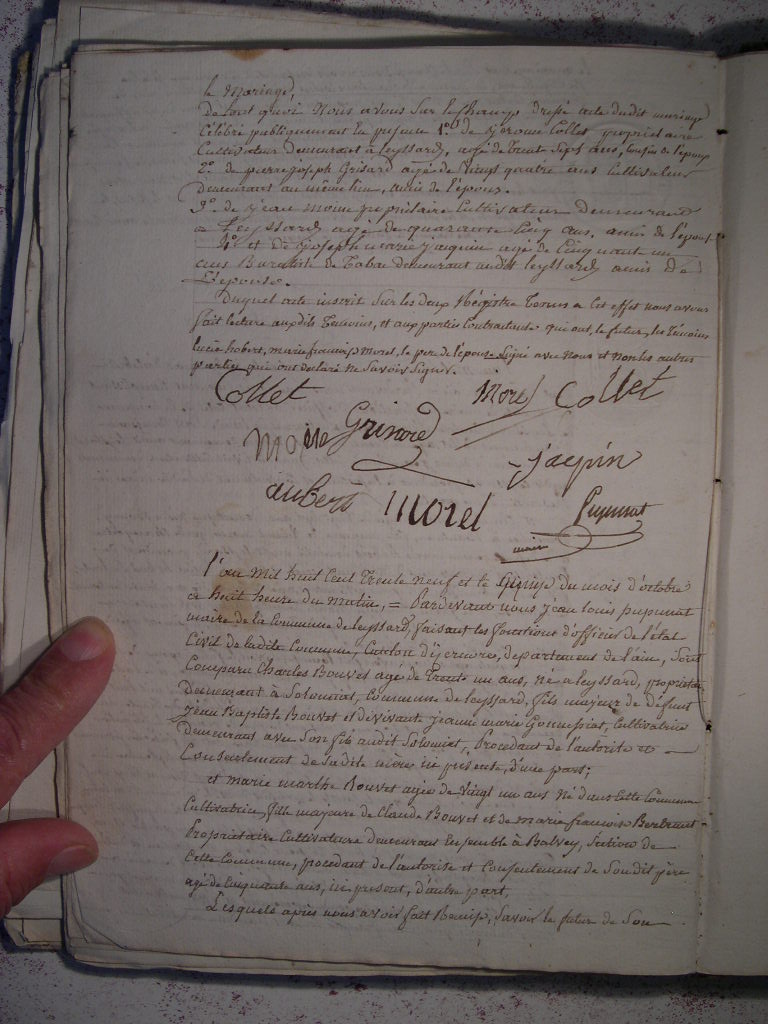 le mariage,
De tout quoi Nous avons Sur le Champ dressé acte dudit mariage
Célébré publiquement En présence 1.º de jerome Collet propriétaire
Cultivateur Demeurant a leyssard, agé de trente Sept ans, Cousin de l'epoux
2.º de pierre joseph Grisard agé de Vingt quatre ans Cultivateur
Demeurant au même lieu, ami de l'époux.
3.º de jean moine propriétaire Cultivateur Demeurant
a Leyssard agé de quarante Cinq ans, ami de l'epouse
4.º et de joseph marie jacquin agé de Cinquante un
ans Buraliste de Tabac Demeurant audit leyssard amis de
L'epouse.
Duquel acte inscrit Sur les deux Régistre Tenus a Cet effet nous avons
fait lecture auxdits Temoins, et aux parties Contractante qui ont, le futur, les Témoins
lucie hobert, marie francois morel, le pere de l'épouse Signé avec Nous et non les autres
parties qui ont déclaré ne Savoir Signer.
Collet Morel Collet
Moine Grisard
jacquin
aubert Morel
Pupunat
maire
l'an Mil huit Cent Trente neuf et le Quinze du mois d'octobre
a huit heure du matin, = Pardevant nous jean louis pupunat
maire de la Commune de leyssard, faisant les fonctions d'officier de l'état
Civil de ladite Commune, Canton d'izernore, departement de l'ain, Sont
Comparu Charles Bouvet agé de Trente un ans, né a leyssard, propriétaire
Demeurant à Solomiat, Commune de leyssard, fils majeur de défunt
jean Baptiste Bouvet et de vivante jeanne marie Gonnessiat, Cultivatrice
Demeurant avec Son fils audit Solomiat, Procédant de l'autorité et
Consentement de Sadite mère ici présente, d'une part;
et Marie marthe Bouvet agée de Vingt un ans Né dans Cette Commune
Cultivatrice, fille majeure de Claude Bouvet et de marie francoise
Propriétaire Cultivateurs demeurant Ensemble à Balvay, Section de
Cette Commune, procédant de l'autorité et Consentement de Son dit père
agé de Cinquante ans, ici présent, d'autre part,
Lesquels après nous avoir fait Remise, Savoir le futur de Son